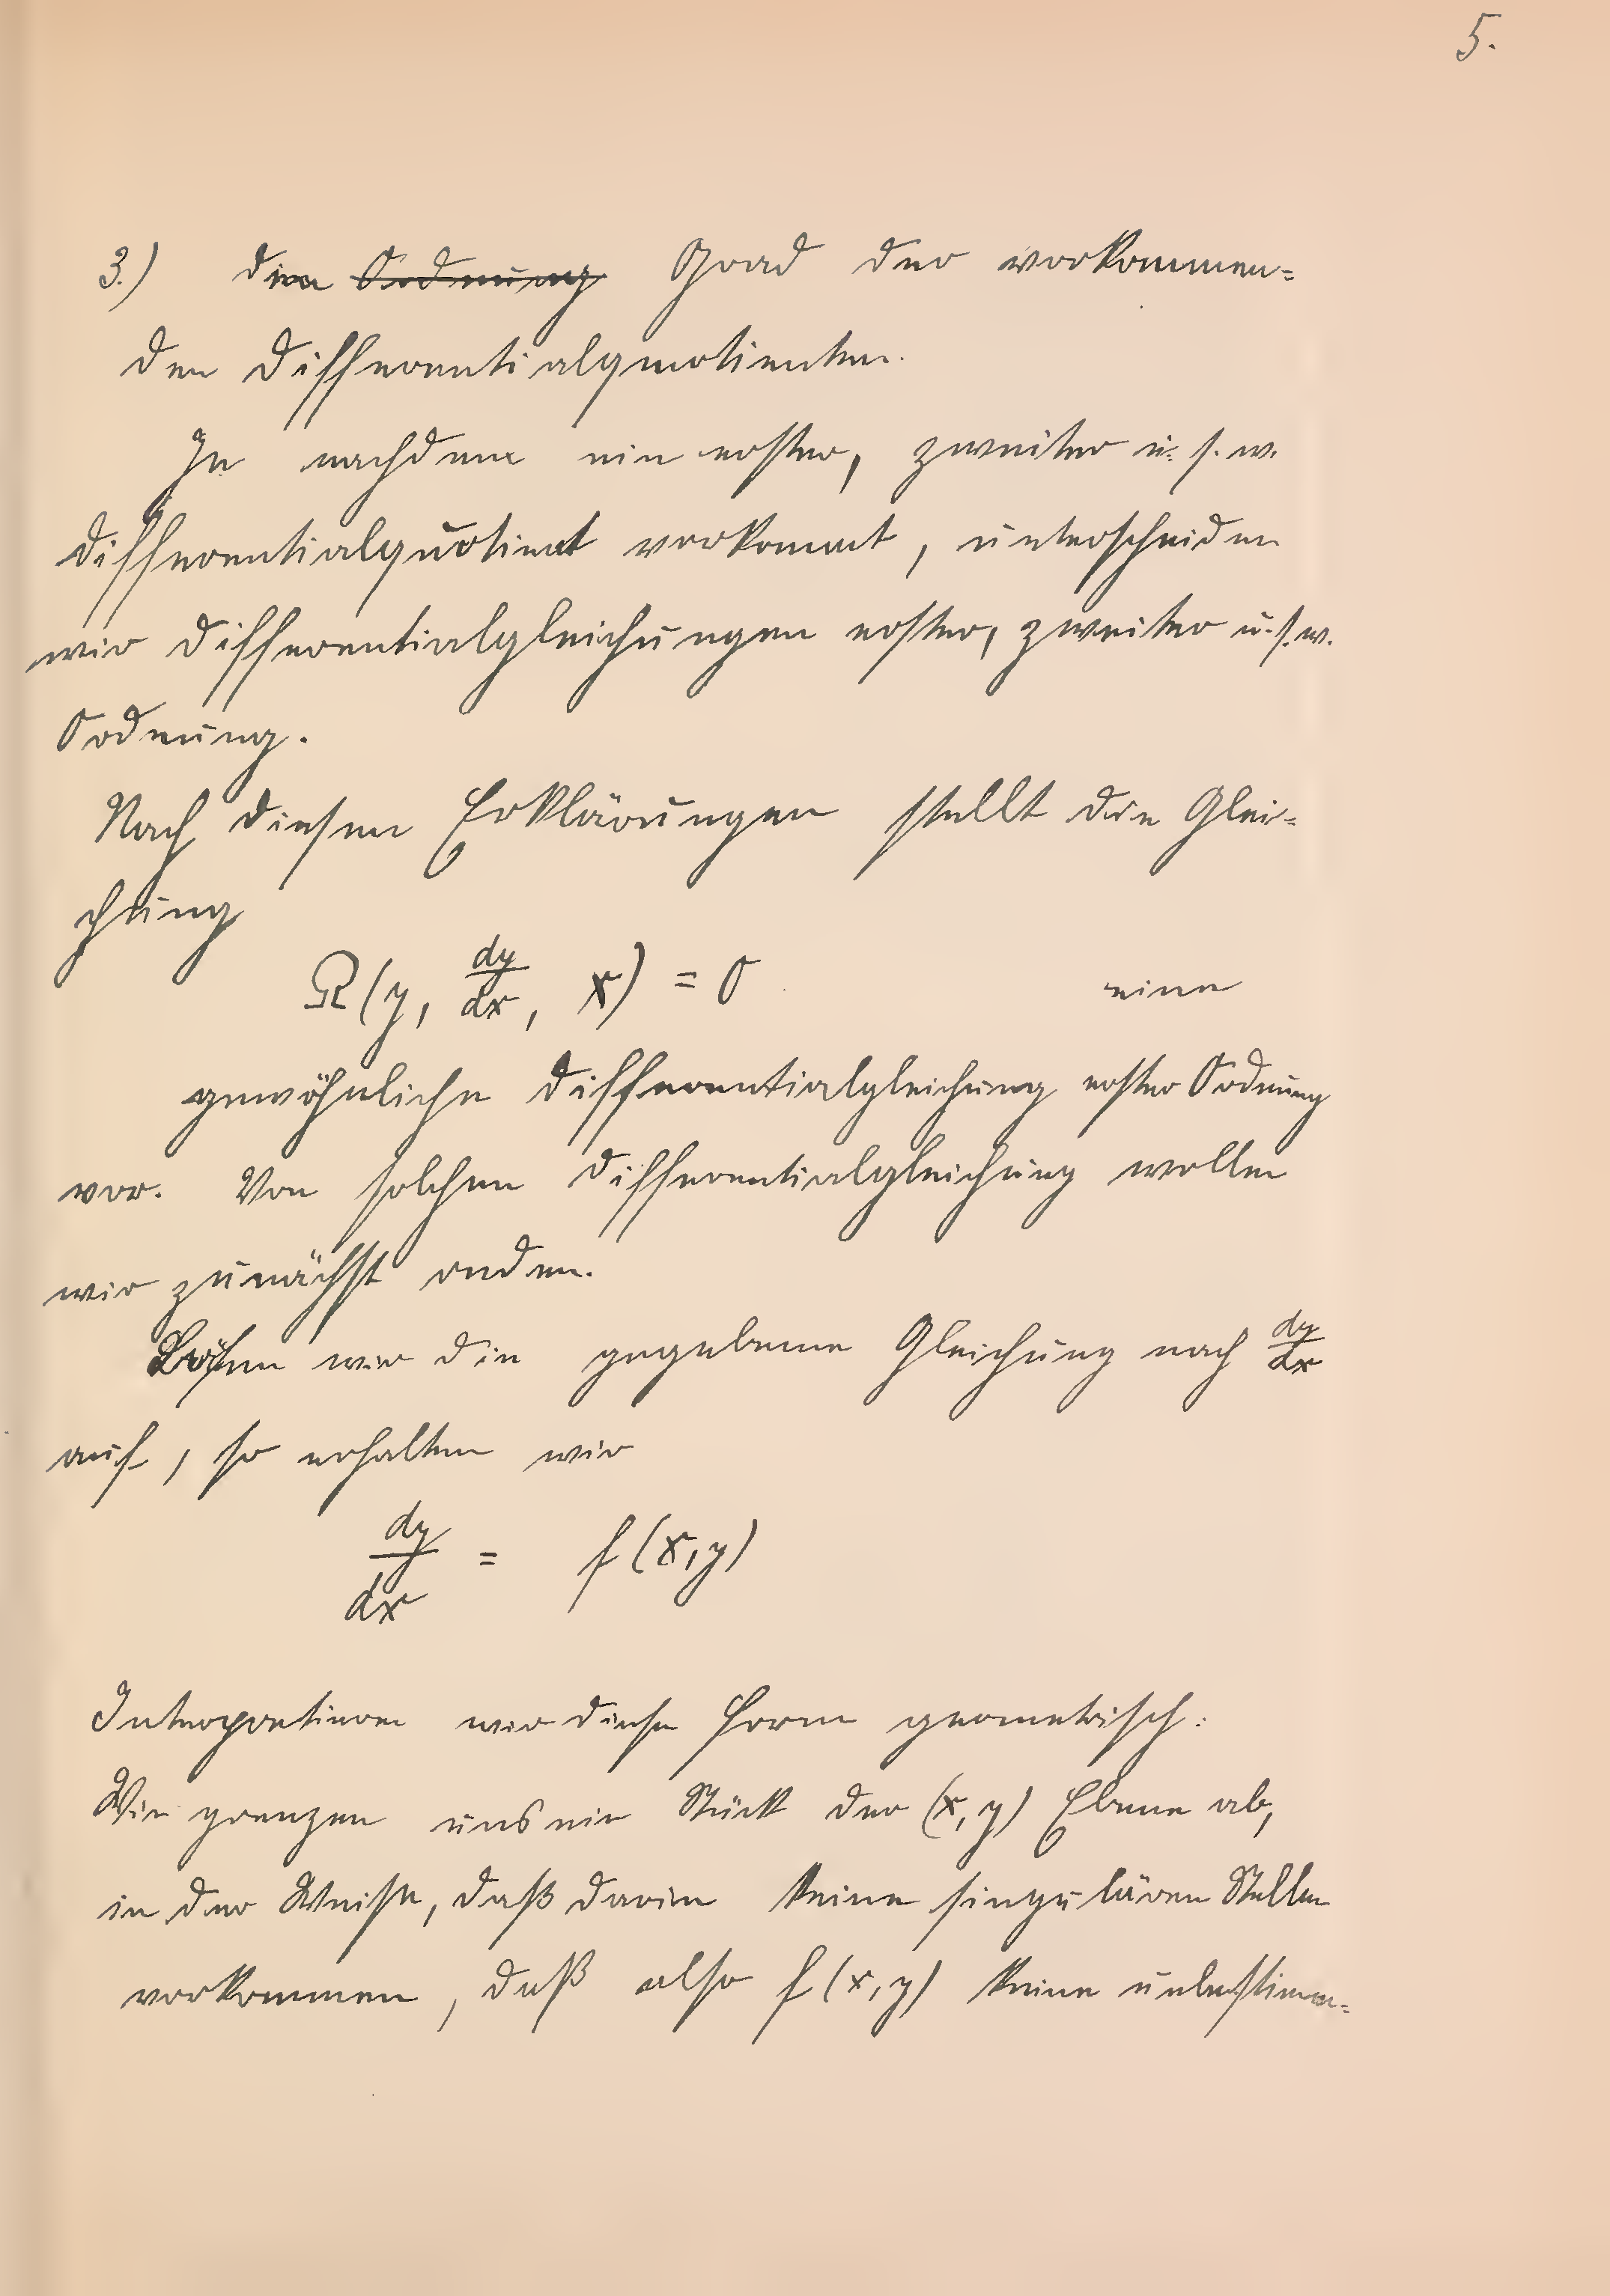 5.
3.) den Ordnung Grad der vorkommen=
den Differentialquotienten.
Je nachdem ein erster, zweiter u. s. w.
Differentialquotient vorkommt, unterscheiden
wir Differentialgleichungen erster, zweiter u. s. w.
Ordnung.
Nach diesen Erklärungen stellt die Glei=
chung
Ω(y, dy/dx, x) = 0 eine
gewöhnliche Differentialgleichung erster Ordnung
vor. Von solchen Differentialgleichung wollen
wir zunächst reden.
Lösen wir die gegebene Gleichung nach dy/dx
auf, so erhalten wir
dy/dx = f(x,y)
Interpretieren wir diese Form geometrisch:
Wir grenzen uns ein Stück der (x,y) Ebene ab,
in der Weise, daß darin keine singulären Stellen
vorkommen, daß also f(x,y) keine unbestimm=